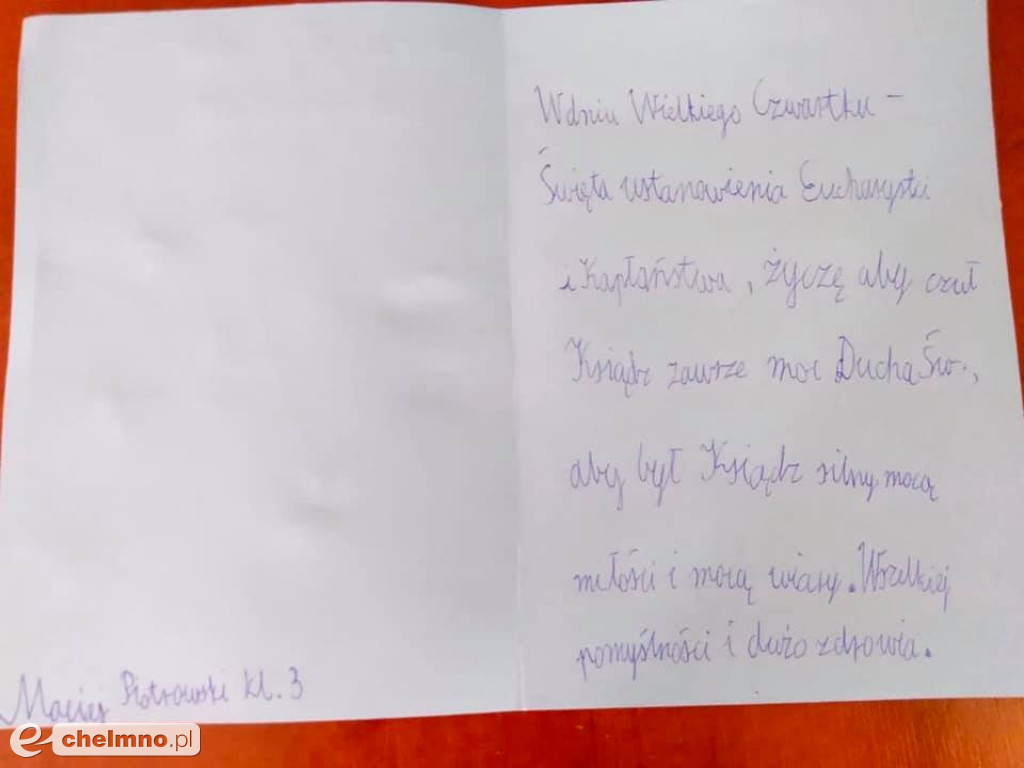 W dniu Wielkiego Czwartku -
Święta ustanowienia Eucharystii
i Kapłaństwa, życzę aby czuł
Ksiądz zawsze moc Ducha Św.,
aby był Ksiądz silny mocą
miłości i mocą wiary. Wszelkiej
pomyślności i dużo zdrowia.
Maciej Piotrowski kl. 3
e-chelmno.pl